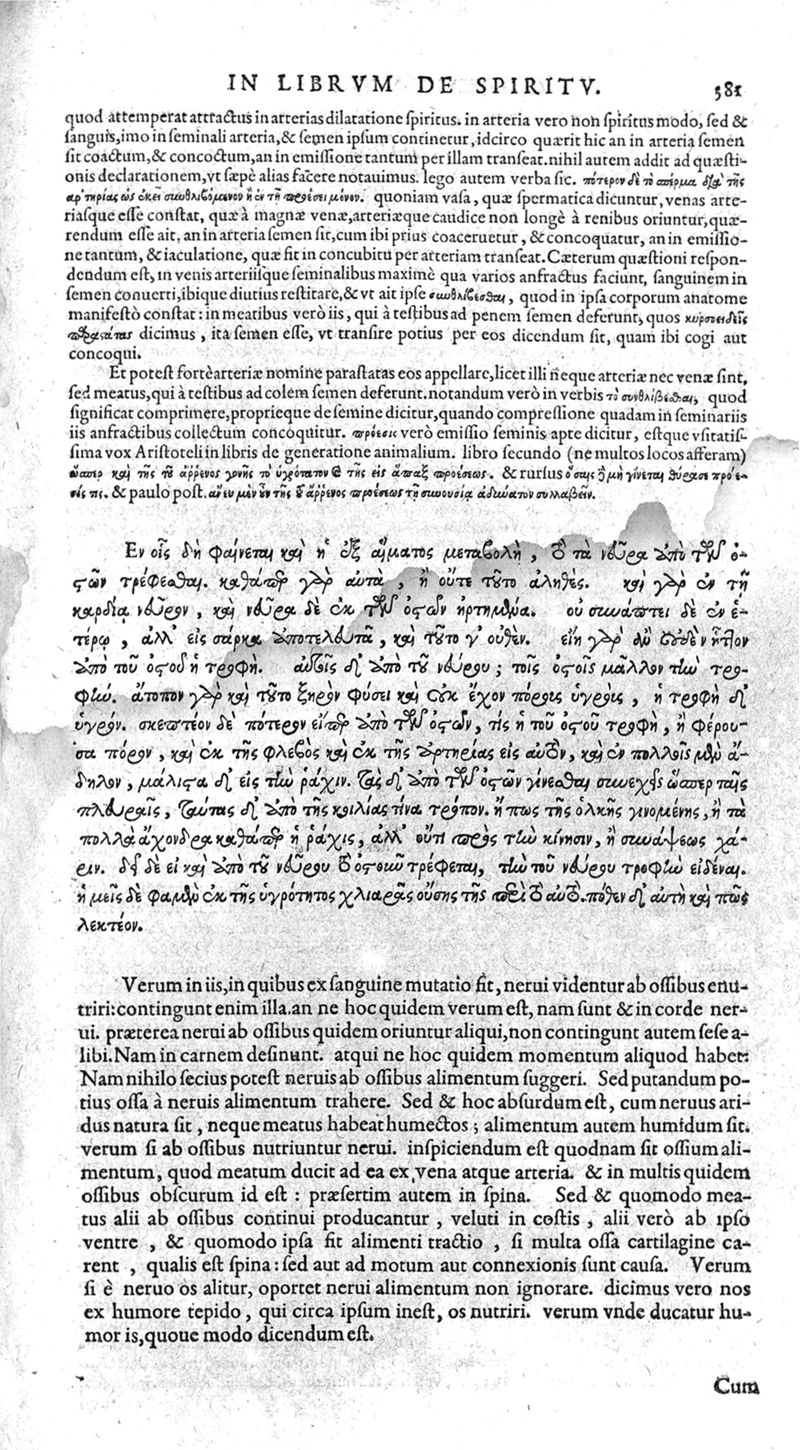 IN LIBRVM DE SPIRITV. 381
quod attemperat attractus in arterias dilatatione ſpiritus. in arteria vero non ſpiritus modo, ſed &
ſanguis, imo in ſeminali arteria, & ſemen ipſum continetur, idcirco quærit hic an in arteria ſemen
ſit coactum, & concoctum, an in emiſſione tantum per illam tranſeat. nihil autem addit ad quæſti-
onis declarationem, vt ſæpè alias facere notauimus. lego autem verba ſic. πότερον δὲ τὸ σπέρμα διὰ τῆς
ἀρτηρίας ὡς ἐκεῖ συνθλιβόμενον ἢ ἐν τῇ προέσει μόνον. quoniam vaſa, quæ ſpermatica dicuntur, venas arte-
riaſque eſſe conſtat, quæ à magnæ venæ, arteriæque caudice non longè à renibus oriuntur, quæ-
rendum eſſe ait, an in arteria ſemen ſit, cum ibi prius coaceruetur, & concoquatur, an in emiſſio-
ne tantum, & iaculatione, quæ fit in concubitu per arteriam tranſeat. Cæterum quæſtioni reſpon-
dendum eſt, in venis arteriiſque ſeminalibus maximè qua varios anfractus faciunt, ſanguinem in
ſemen conuerti, ibique diutius reſtitare, & vt ait ipſe συνθλίβεσθαι, quod in ipſa corporum anatome
manifeſtò conſtat: in meatibus verò iis, qui à teſtibus ad penem ſemen deferunt, quos κιρσοειδεῖς
παραστάτας dicimus, ita ſemen eſſe, vt tranſire potius per eos dicendum ſit, quam ibi cogi aut
concoqui.
Et poteſt fortè arteriæ nomine paraſtatas eos appellare, licet illi neque arteriæ nec venæ ſint,
ſed meatus, qui à teſtibus ad colem ſemen deferunt. notandum verò in verbis τὸ συνθλίβεσθαι, quod
ſignificat comprimere, proprieque de ſemine dicitur, quando compreſſione quadam in ſeminariis
iis anfractibus collectum concoquitur. πρόεσις verò emiſſio ſeminis apte dicitur, eſtque vſitatiſ-
ſima vox Ariſtoteli in libris de generatione animalium. libro ſecundo (ne multos locos afferam)
ὥσπερ καὶ τῆς τοῦ ἄρρενος γονῆς τὸ ὑγρότατον τῆς εἰς ἅπαξ προέσεως. & rurſus ὅσαις ἢ μὴ γίνεται θύραζε πρόε-
σίς τις. & paulo poſt. ἄνευ μὲν οὖν τῆς τοῦ ἄρρενος προέσεως τῇ συνουσίᾳ ἀδύνατον συλλαβεῖν.
Εν οἷς δὴ φαίνεται καὶ ἡ ἐξ αἵματος μεταβολὴ, τὰ νεῦρα ἀπὸ τῶν ὀ-
στῶν τρέφεσθαι. καθάπερ γὰρ αὐτὰ, ἢ οὔτε τοῦτο ἀληθές. καὶ γὰρ ἐν τῇ
καρδίᾳ νεῦρον, καὶ νεῦρα δὲ ἐκ τῶν ὀστῶν ἠρτημένα. οὐ συνάπτει δὲ ἐν ἑ-
τέρῳ, ἀλλ' εἰς σάρκα ἀποτελευτᾷ, καὶ τοῦτο γ' οὐθέν. εἴη γὰρ ἂν οὐδὲν ἧττον
ἀπὸ τοῦ ὀστοῦ ἡ τροφή. αὐτοῖς δ' ἀπὸ τοῦ νεύρου; τοῖς ὀστοῖς μᾶλλον τὴν τρο-
φήν. ἄτοπον γὰρ καὶ τοῦτο ξηρὸν φύσει καὶ οὐκ ἔχον πόρους ὑγροὺς, ἡ τροφὴ δ'
ὑγρόν. σκεπτέον δὲ πότερον εἴπερ ἀπὸ τῶν ὀστῶν, τίς ἡ τοῦ ὀστοῦ τροφὴ, ἢ φέρου-
σα πόρον, καὶ ἐκ τῆς φλεβὸς καὶ ἐκ τῆς ἀρτηρίας εἰς αὐτὸν, καὶ ἐν πολλοῖς μὲν ἄ-
δηλον, μάλιστα δ' εἰς τὴν ῥάχιν. τὰς δ' ἀπὸ τῶν ὀστῶν γίνεσθαι συνεχεῖς ὥσπερ ταῖς
πλευραῖς, ταύτας δ' ἀπὸ τῆς κοιλίας τίνα τρόπον. ἢ πως τῆς ὁλκῆς γινομένης, ἢ τὰ
πολλὰ ἄχονδρα καθάπερ ἡ ῥάχις, ἀλλ' οὔτι πρὸς τὴν κίνησιν, ἢ συνάψεως χά-
ριν. δεῖ δὲ εἰ καὶ ἀπὸ τοῦ νεύρου τὸ ὀστοῦν τρέφεται, τὴν τοῦ νεύρου τροφὴν εἰδέναι.
ἡμεῖς δὲ φαμὲν ἐκ τῆς ὑγρότητος χλιαρᾶς οὔσης τῆς περὶ τὸ αὐτό. πόθεν δ' αὐτὴ καὶ πῶς
λεκτέον.
Verum in iis, in quibus ex ſanguine mutatio fit, nerui videntur ab oſſibus enu-
triri: contingunt enim illa. an ne hoc quidem verum eſt, nam ſunt & in corde ner-
ui. præterea nerui ab oſſibus quidem oriuntur aliqui, non contingunt autem ſeſe a-
libi. Nam in carnem deſinunt. atqui ne hoc quidem momentum aliquod habet:
Nam nihilo ſecius poteſt neruis ab oſſibus alimentum ſuggeri. Sed putandum po-
tius oſſa à neruis alimentum trahere. Sed & hoc abſurdum eſt, cum neruus ari-
dus natura ſit, neque meatus habeat humectos; alimentum autem humidum ſit.
verum ſi ab oſſibus nutriuntur nerui. inſpiciendum eſt quodnam ſit oſſium ali-
mentum, quod meatum ducit ad ea ex vena atque arteria. & in multis quidem
oſſibus obſcurum id eſt: præſertim autem in ſpina. Sed & quomodo mea-
tus alii ab oſſibus continui producantur, veluti in coſtis, alii verò ab ipſo
ventre, & quomodo ipſa fit alimenti tractio, ſi multa oſſa cartilagine ca-
rent, qualis eſt ſpina: ſed aut ad motum aut connexionis ſunt cauſa. Verum
ſi è neruo os alitur, oportet nerui alimentum non ignorare. dicimus vero nos
ex humore tepido, qui circa ipſum ineſt, os nutriri. verum vnde ducatur hu-
mor is, quoue modo dicendum eſt.
Cum